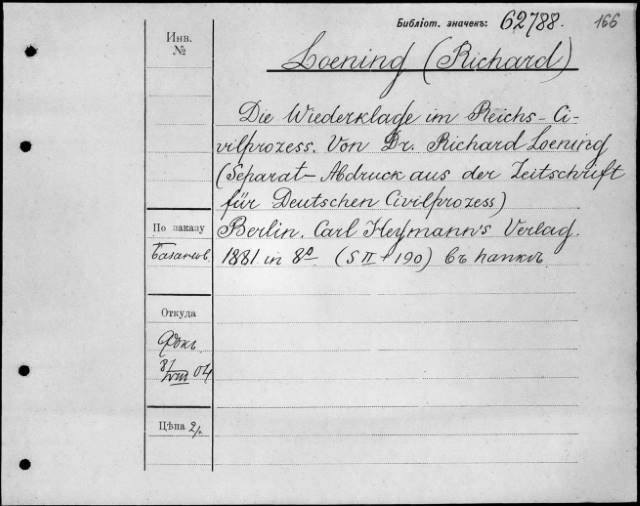 Библіот. значекъ: 62788. 166
Инв.
№
Loening (Richard)
Die Wiederklage im Reichs-Ci-
vilprozess. Von Dr. Richard Loening
(Separat-Abdruck aus der Zeitschrift
für Deutschen Civilprozess)
По заказу
Berlin. Carl Heymann's Verlag.
1881 in 8º (S II + 190) въ папкѣ.
Откуда
04
Цѣна 2